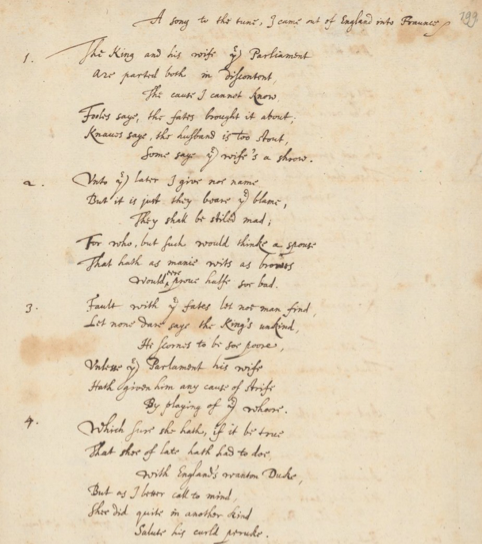 A song to the tune, I came out of England into Fraunce
199
1. The King and his wife yͤ Parliament
Are parted both in discontent
The cause I cannot know
Fooles saye, the fates brought it about,
Knaues saye, the husband is too stout,
Some saye yͤ wife's a shrow.
2. Vnto yͤ later I giue noe name
But it is just they beare yͤ blame,
They shal be stiled mad;
For who, but such would thinke a spouse
That hath as manie wits as browes
Would ere proue halfe soe bad.
3. Fault with yͤ fates let noe man find,
Let none dare saye the King's unkind,
He scornes to be soe poore,
Vnlesse yͤ Parlament his wife
Hath given him any cause of strife
By playing of yͤ whore.
4. Which sure she hath, if it be true
That shee of late hath had to doe
With England's wanton Duke,
But as I better call to mind,
Shee did quite in another kind
Salute his curld peruke.